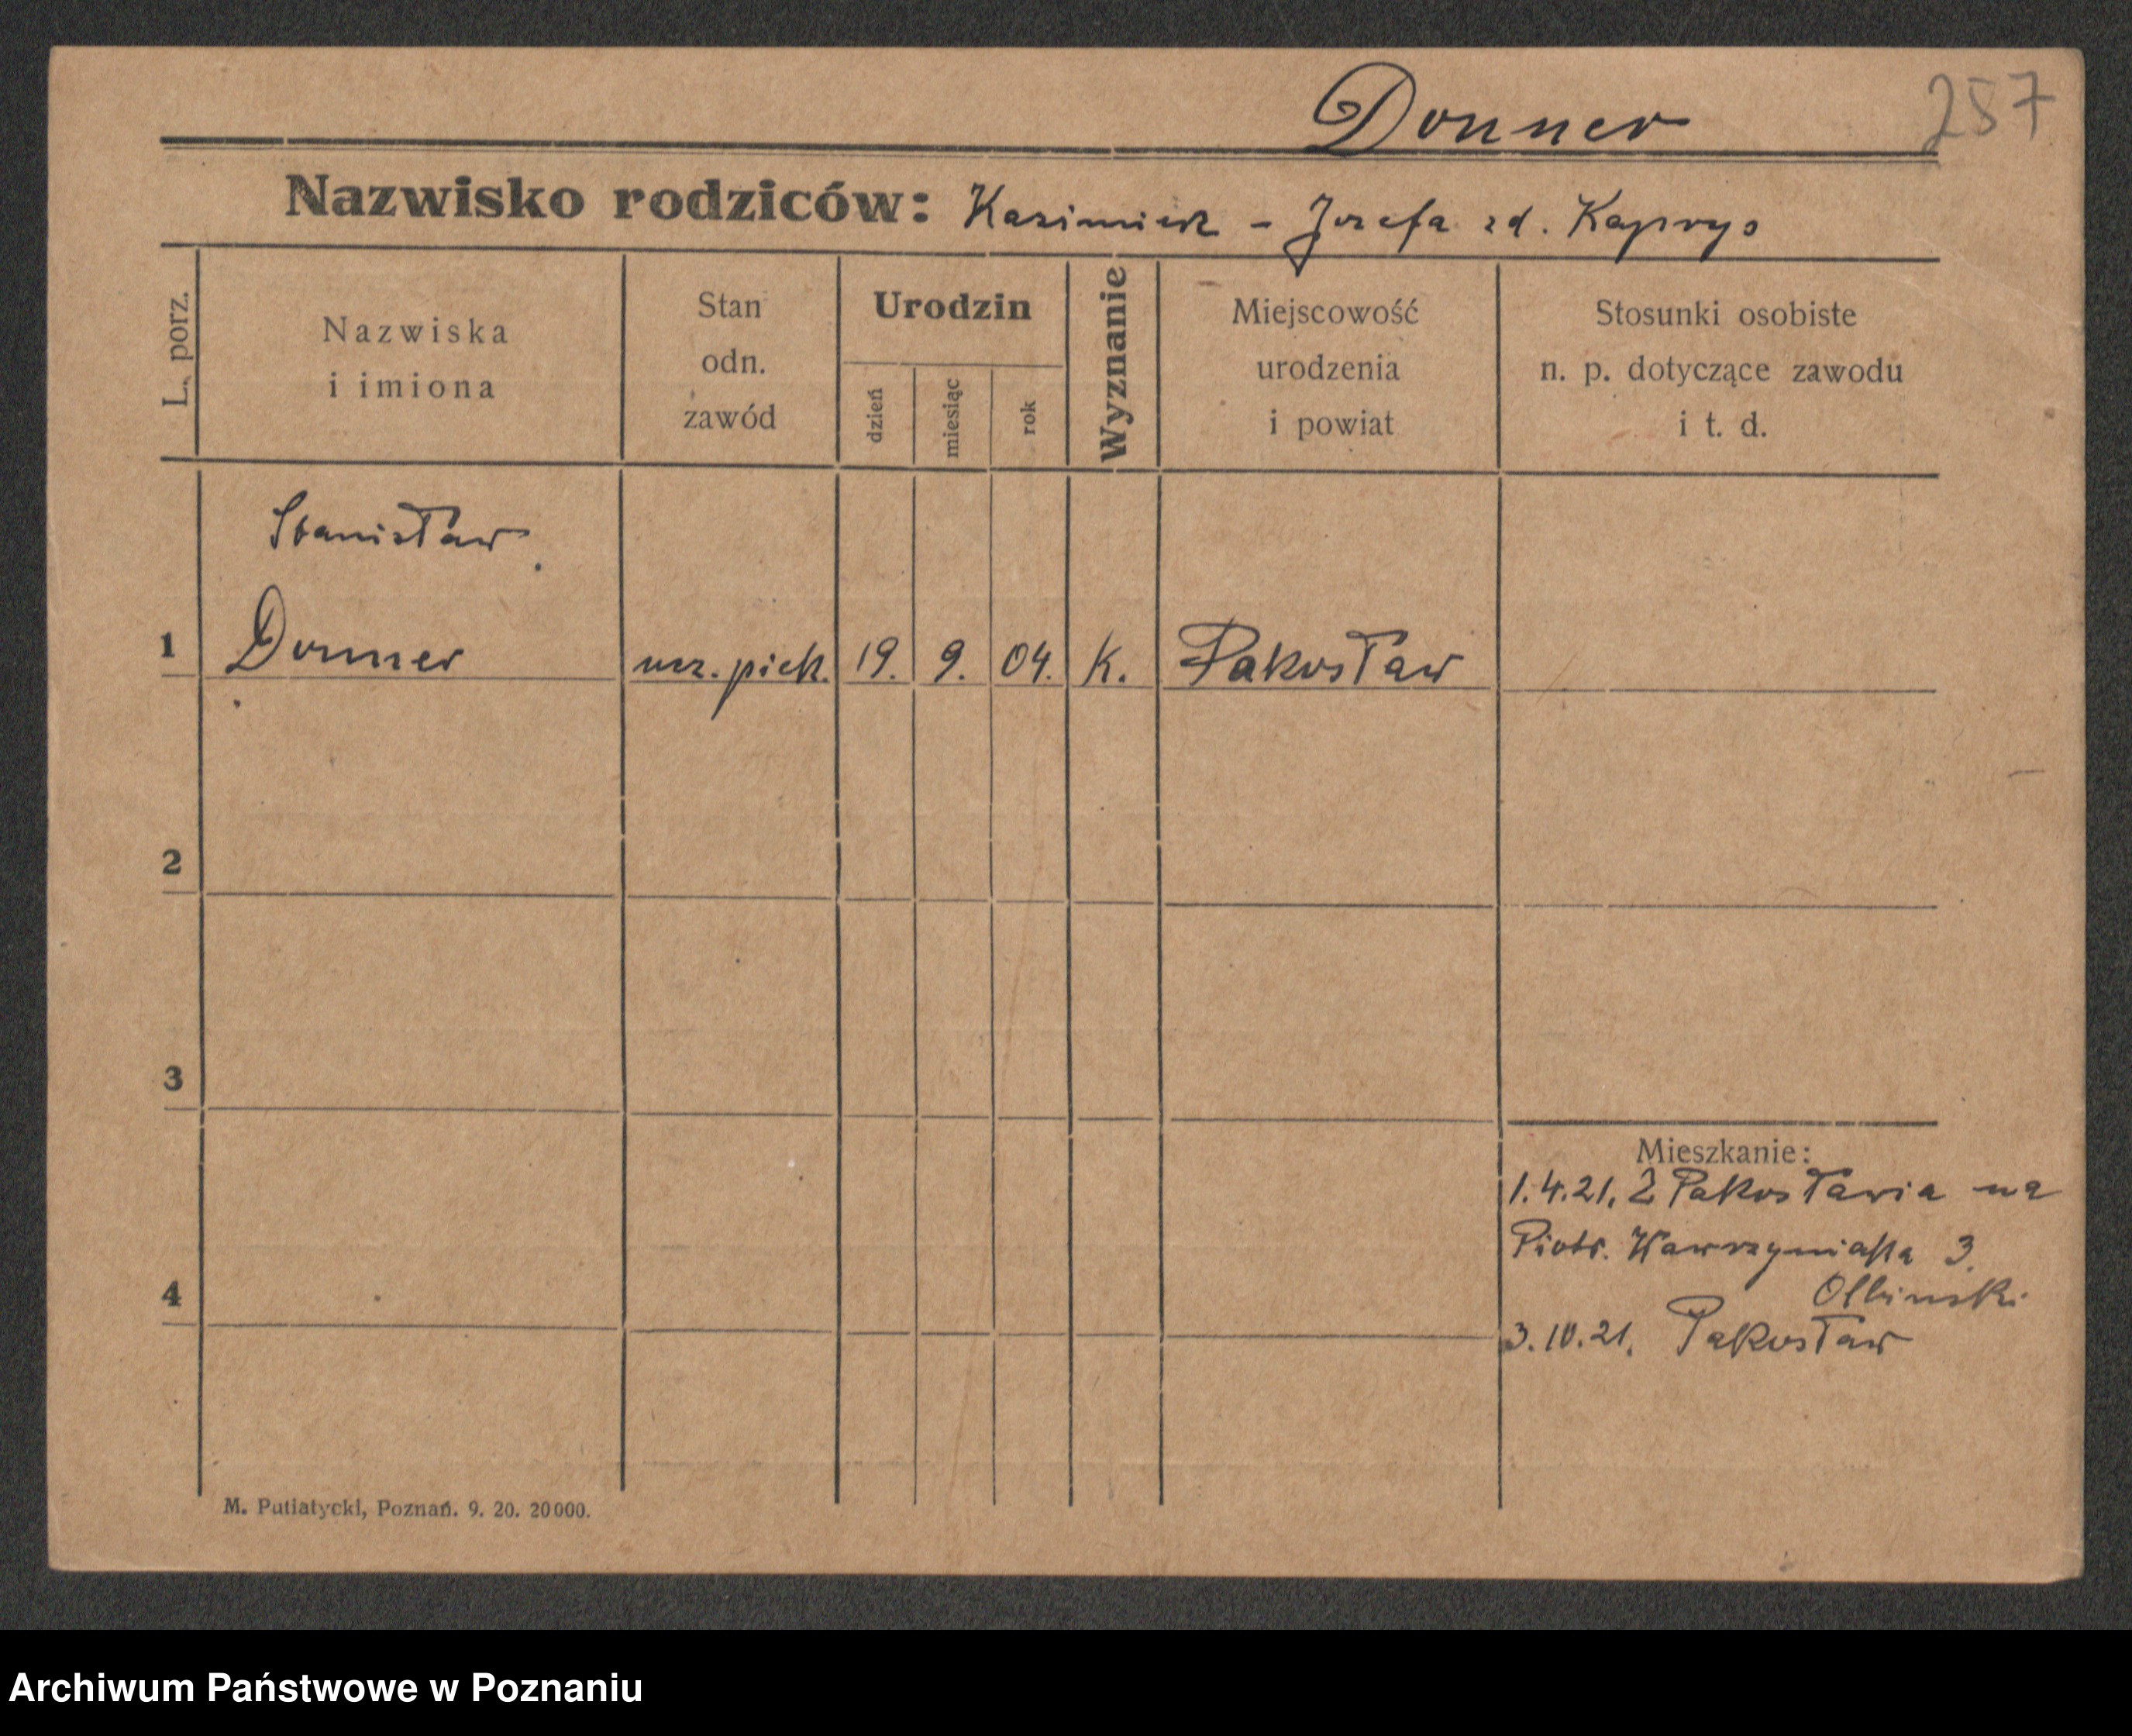 Donner
257
Nazwisko rodziców: Kazimierz - Jozefa zd. Kaprys
L. porz.
Nazwiska
i imiona
Stan
odn.
zawód
Urodzin
dzień
miesiąc
rok
Wyznanie
Miejscowość
urodzenia
i powiat
Stosunki osobiste
n. p. dotyczące zawodu
i t. d.
Stanisław
1 Donner ucz. piek. 19. 9. 04. K. Pakosław
2
3
4
Mieszkanie:
1.4.21. Z Pakosławia na
Piotr. Wawrzyniaka 3.
3.10.21. Pakosław
M. Putiatycki, Poznań. 9. 20. 20000.
Archiwum Państwowe w Poznaniu